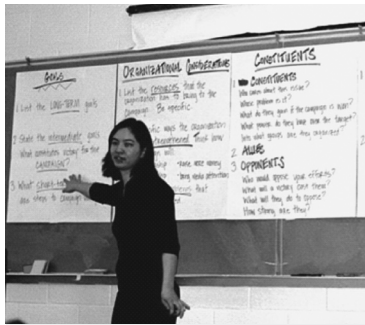 GOALS
1. List the LONG-TERM goals
2. State the intermediate goals
What constitutes victory for the
CAMPAIGN?
3 What short-term
ORGANIZATIONAL CONSIDERATIONS
1. List the resources that the
organization has to bring to the
campaign. Be specific.
ways the organization
strengthened
raise more money
CONSTITUENTS
1. CONSTITUENTS
Who cares about this issue?
Whose problem is it?
What do they gain if the campaign is won?
What power do they have over the target?
Into what groups are they organized?
2 ALLIES
3 OPPONENTS
Who would oppose your efforts?
What will a victory cost them?
What will they do to oppose?
How strong are they?